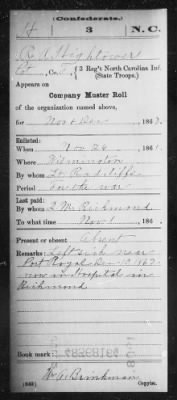 (Confederate.)
H 3 N.C.
R. J. Hightower
Co. F, 3 Reg't North Carolina Inf.
(State Troops.)
Appears on
Company Muster Roll
of the organization named above,
for Nov & Dec, 1862.
Enlisted:
When Nov 26, 186
Where Wilmington
By whom Lt Radcliffe
Period For the war
Last paid:
By whom Richmond
To what time Nov 1, 186
Present or absent Absent
Remarks: Left sick near
Port Royal Dec 10 1862
now in Hospital in
Richmond
Book mark:
W. G. Brinkman
(642) Copyist.